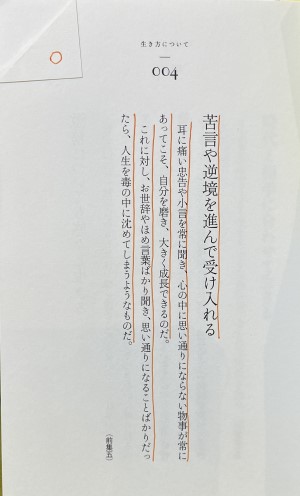 生き方について
004
苦言や逆境を進んで受け入れる
耳に痛い忠告や小言を常に聞き、心の中に思い通りにならない物事が常に
あってこそ、自分を磨き、大きく成長できるのだ。
これに対し、お世辞やほめ言葉ばかり聞き、思い通りになることばかりだっ
たら、人生を毒の中に沈めてしまうようなものだ。
(前集五)